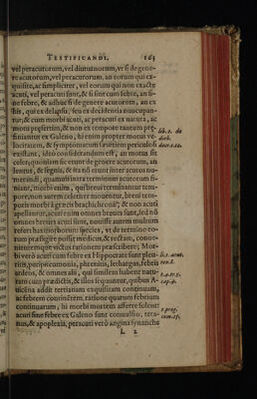 TESTIFICANDI. 163
vel peracutorum, vel diuturnorum, vt si de gene-
re acutorum, vel peracutorum. an eorum qui ex-
quisitè, ac simpliciter, vel eorum qui non exactè
acuti, vel peracuti sint, & si sint cum febre, an si-
ne febre, & adhuc si de genere acutorum, an ex
iis, qui ex delapsu, seu ex decidentia nuncupan-
tur, & cum morbi acuti, ac peracuti ex natura, ac
motu ipsissetim, & non ex tempore tantum de-
finiantur ex Galeno, hi enim propter motus ve-
locitatem, & symptomatum sæuitiem periculosi
existunt, ideò considerandum est, an motus sit
celer, quoniam sic erunt de genere acutorum, an
lentus, & segnis, & ita nō erunt inter acutos nu-
merandi, quamuis intra terminum acutorum fi-
niant, morbi enim, qui breui terminantur tem-
pore, non autem celeriter mouentur, breui tem-
poris morbi à græcis brachichronij, & non acuti
appellantur, acuti enim omnes breues sunt, sed nō
omnes breues acuti sunt, nouisse autem multum
refert has morborum species, vt de termino eo-
rum præsagire possit medicus, & rectam, conue-
nientemque victus rationem præscribere; Mor-
bi verò acuti cum febre ex Hippocrate sunt pleu-
ritis, peripneumonia, phrenitis, lethargus, febris
ardens, & omnes alii, qui similem habent natu-
ram cum prædictis, & illos sequuntur, quibus A-
uicena addit tertianam exquisitam continuam,
ac febrem continentem, ratione quarum febrium
continuarum, hi morbi mortem afferre solent:
acuti sine febre ex Galeno sunt conuulsio, teta-
nus, & apoplexia, peracuti verò angina synanche
L 2
lib. 2. de